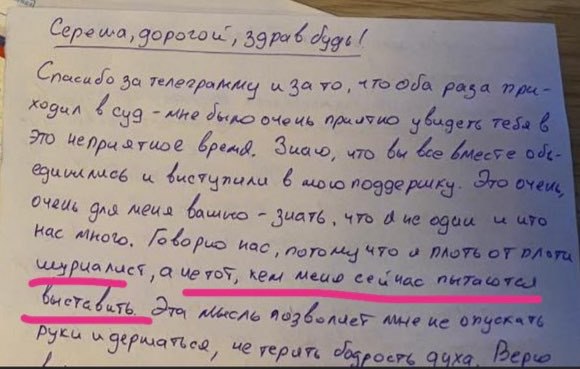 Сережа, дорогой, здрав будь!
Спасибо за телеграмму и за то, что оба раза при-
ходил в суд - мне было очень приятно увидеть тебя в
это неприятное время. Знаю, что вы все вместе объ-
единились и выступили в мою поддержку. Это очень,
очень для меня важно - знать, что я не один и что
нас много. Говорю нас, потому что я плоть от плоти
журналист, а не тот, кем меня сейчас пытаются
выставить. Эта мысль позволяет мне не опускать
руки и держаться, не терять бодрость духа. Верю